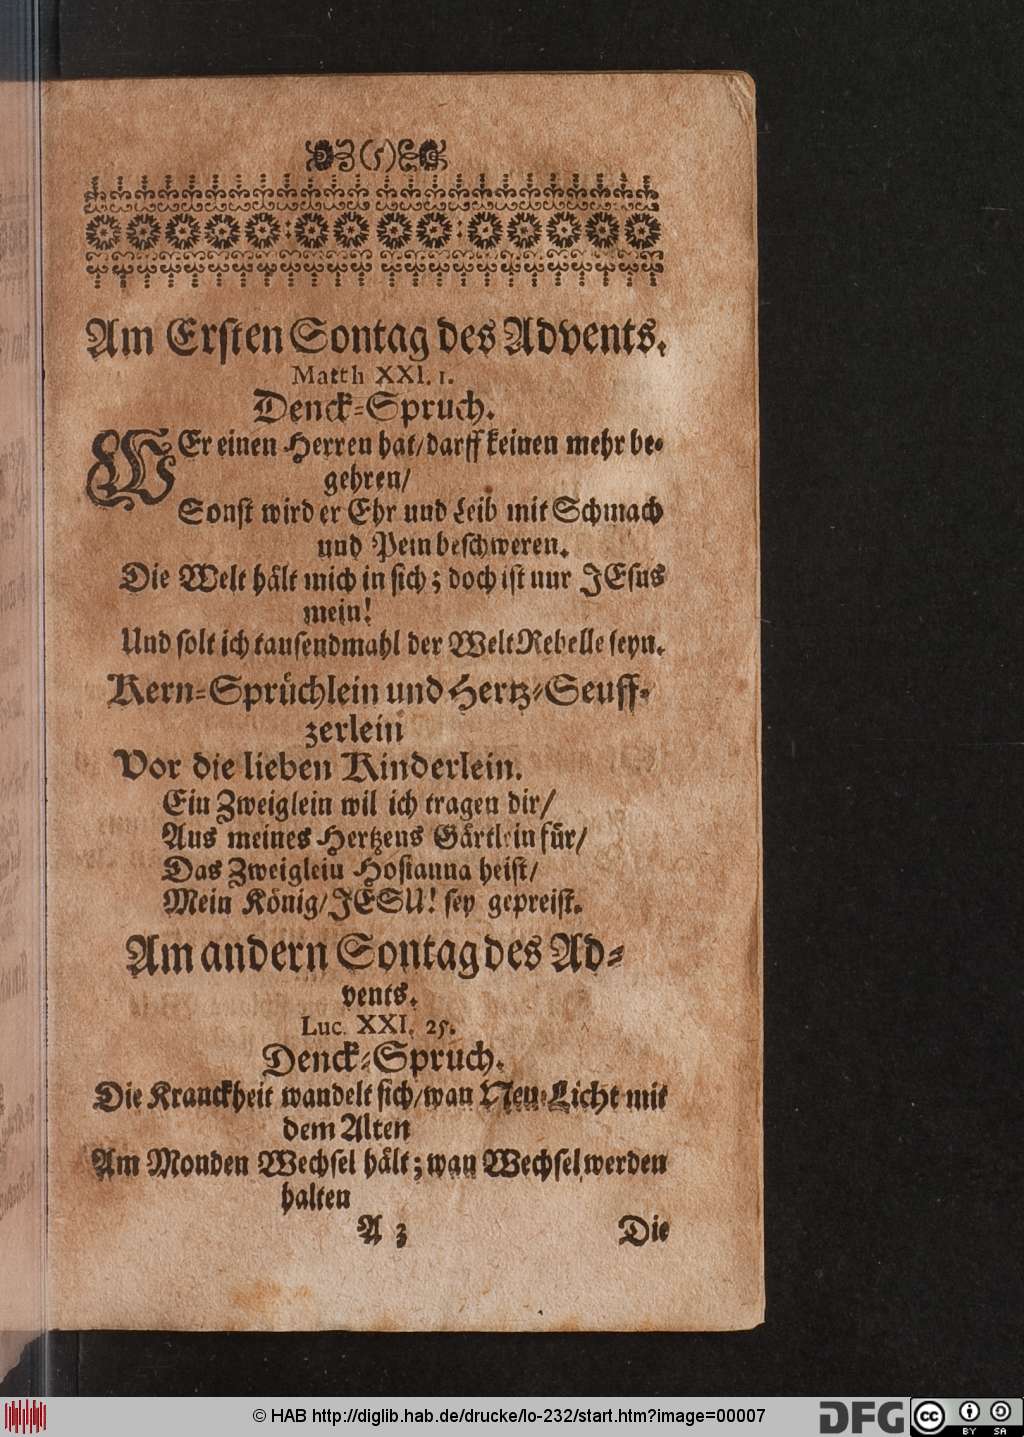 (5)
Am Ersten Sontag des Advents.
Matth XXI. 1.
Denck-Spruch.
WEr einen Herren hat/darff keinen mehr be-
gehren/
Sonst wird er Ehr und Leib mit Schmach
und Pein beschweren.
Die Welt hält mich in sich; doch ist nur JEsus
mein!
Und solt ich tausendmahl der Welt Rebelle seyn.
Kern-Sprüchlein und Hertz-Seuff-
zerlein
Vor die lieben Kinderlein.
Ein Zweiglein wil ich tragen dir/
Aus meines Hertzens Gärtlein für/
Das Zweiglein Hosianna heist/
Mein König/JESU! sey gepreist.
Am andern Sontag des Ad-
vents.
Luc. XXI. 25.
Denck-Spruch.
Die Kranckheit wandelt sich/wan Neu-Licht mit
dem Alten
Am Monden Wechsel hält; wan Wechsel werden
halten
A 3 Die
© HAB http://diglib.hab.de/drucke/lo-232/start.htm?image=00007
DFG
cc BY SA